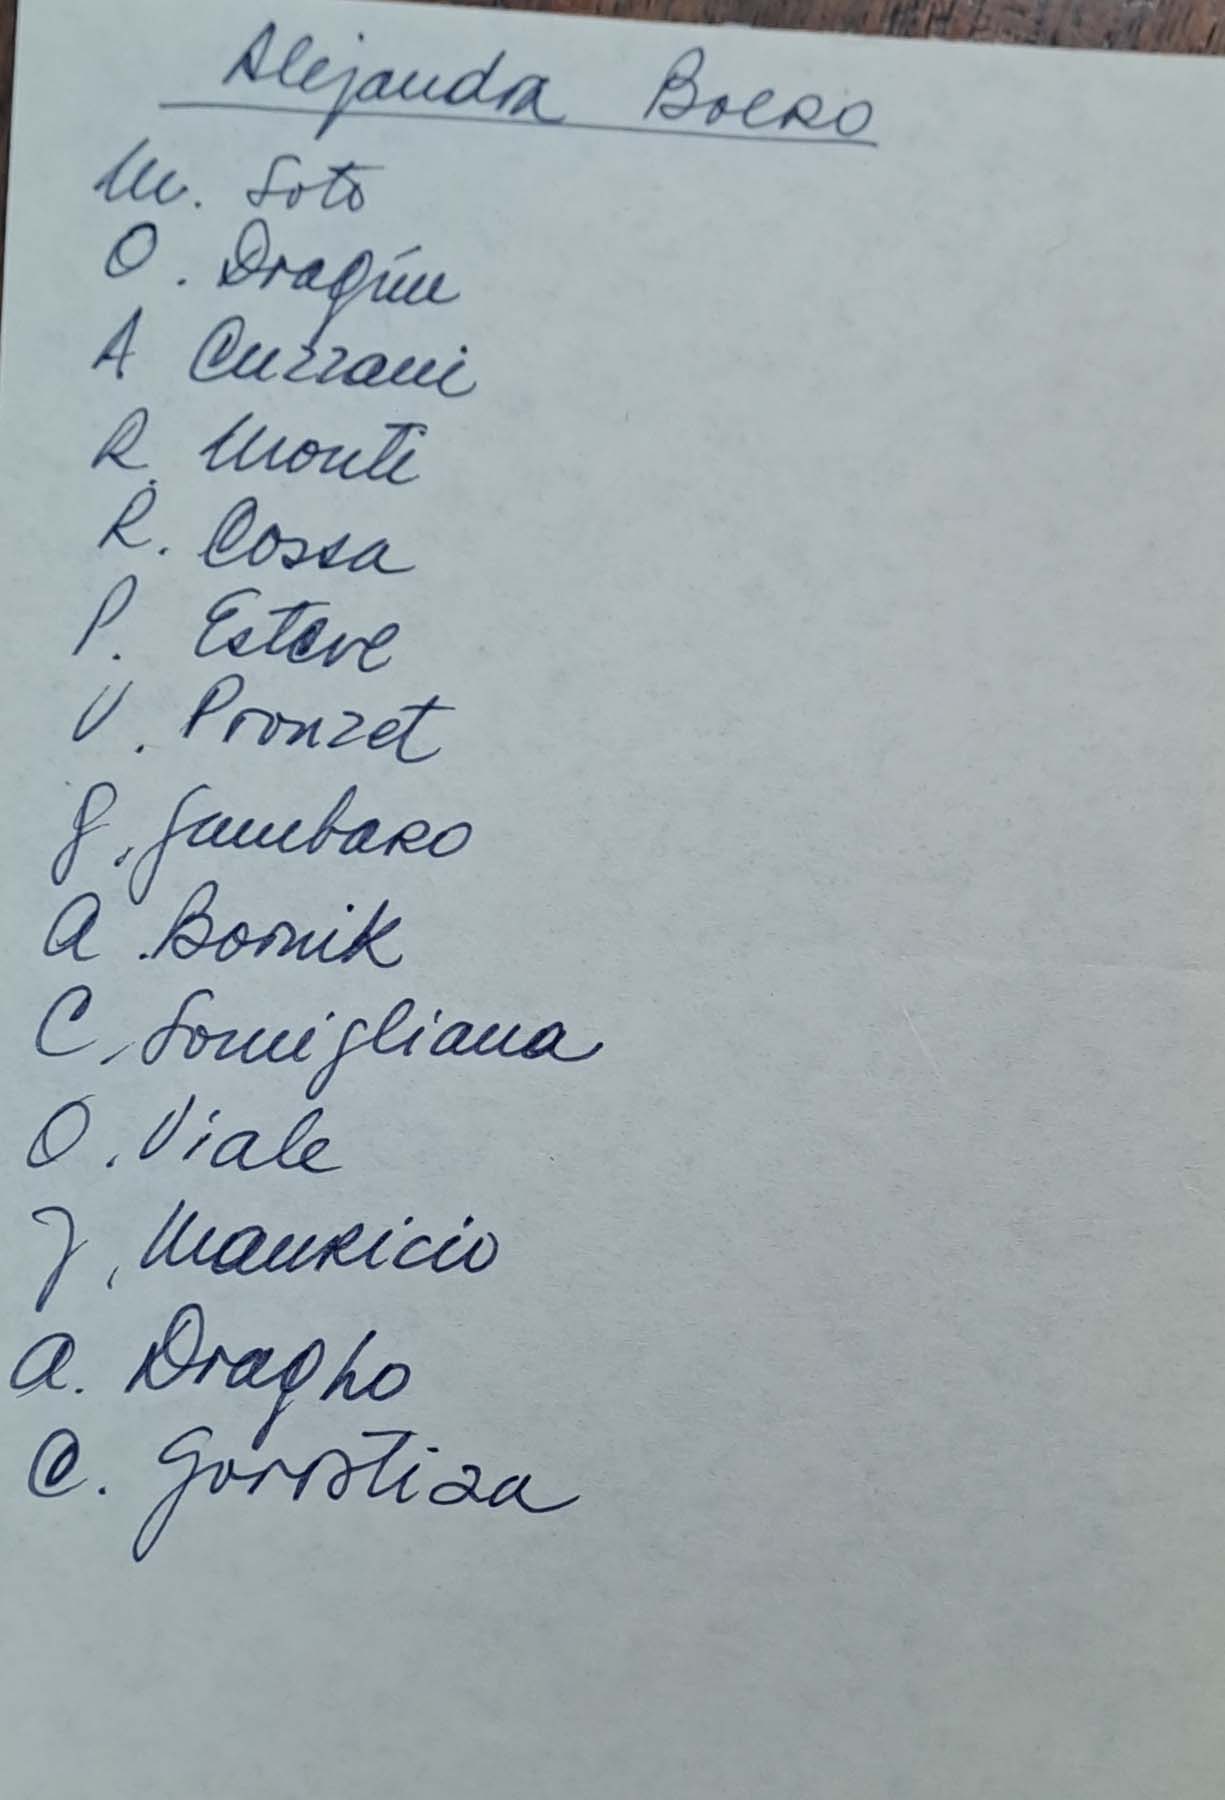 Alejandra Boero
M. Soto
O. Dragún
A Cuzzani
R. Monti
R. Cossa
P. Esteve
V. Pronzet
G. Gambaro
A. Bornik
C. Somigliana
O. Viale
J. Mauricio
A. Dragho
C. Gorostiza